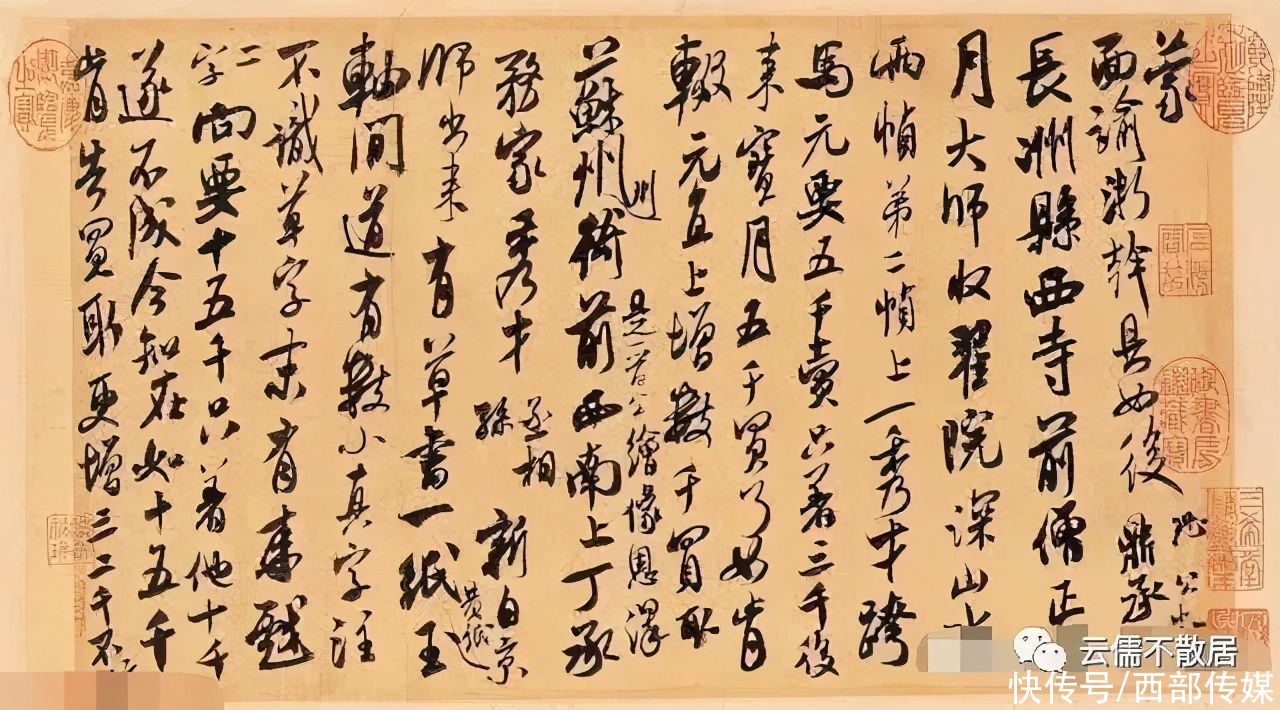 蒙
面諭浙幹具如後 恐公忘 鼎承
長洲縣西寺前僧正
月大師收翟院深山水
兩幀第二幀上一秀才跨
馬元要五千賣只著三千後
來寶月五千買了如肯
輟元直上增數千買取
蘇州州衙前西南上丁承
務家秀才 新自京
師出來有草書一紙黃紙王
軸間道有數小真字註
不識草字末有來戲
二字向要十五千只著他十千
遂不成今知在如十五千
肯告買取更增三二千不
云儒不散居
快传号/西部传媒